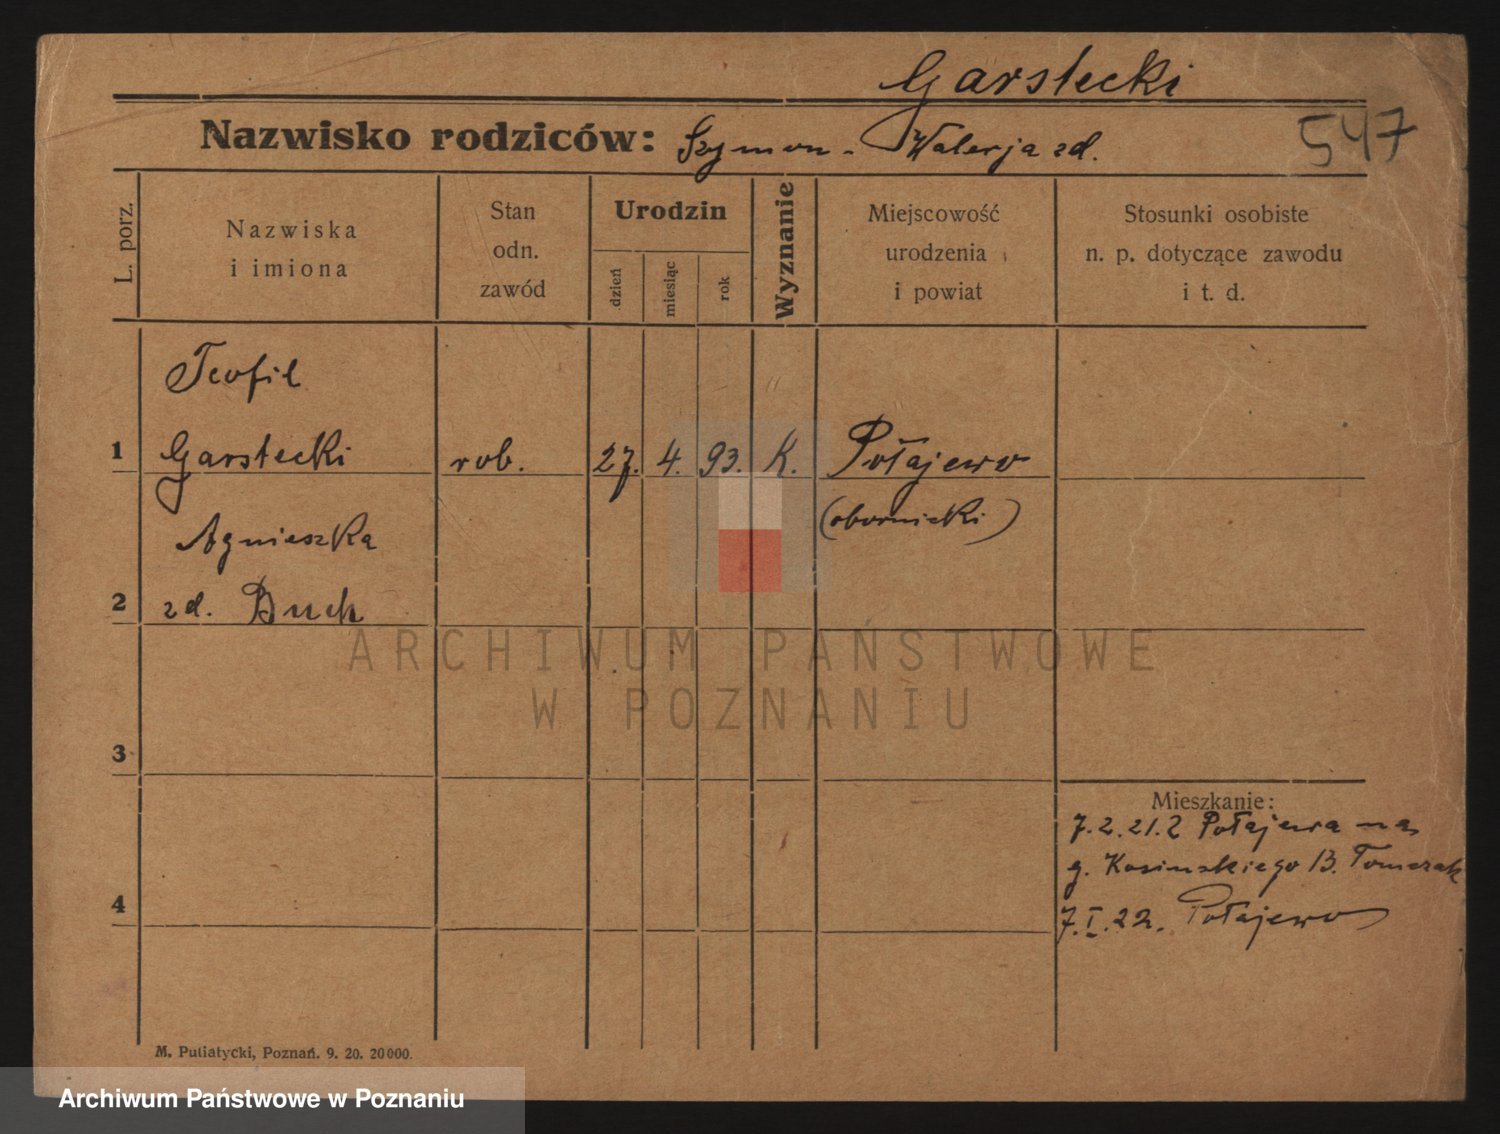 Garstecki
Nazwisko rodziców: Szymon - Walerja zd.
547
L. porz.
Nazwiska
i imiona
Stan
odn.
zawód
Urodzin
dzień
miesiąc
rok
Wyznanie
Miejscowość
urodzenia
i powiat
Stosunki osobiste
n. p. dotyczące zawodu
i t. d.
Teofil
1 Garstecki rob. 27. 4. 93. K. Połajewo
(obornicki)
Agnieszka
2 zd. Duch
ARCHIWUM PAŃSTWOWE
W POZNANIU
3
Mieszkanie:
7.2.21. Z Połajewa na
g. Kosinskiego B. Tomczak
4
7.I.22. Połajewo
M. Putiatycki, Poznań. 9. 20. 20000.
Archiwum Państwowe w Poznaniu